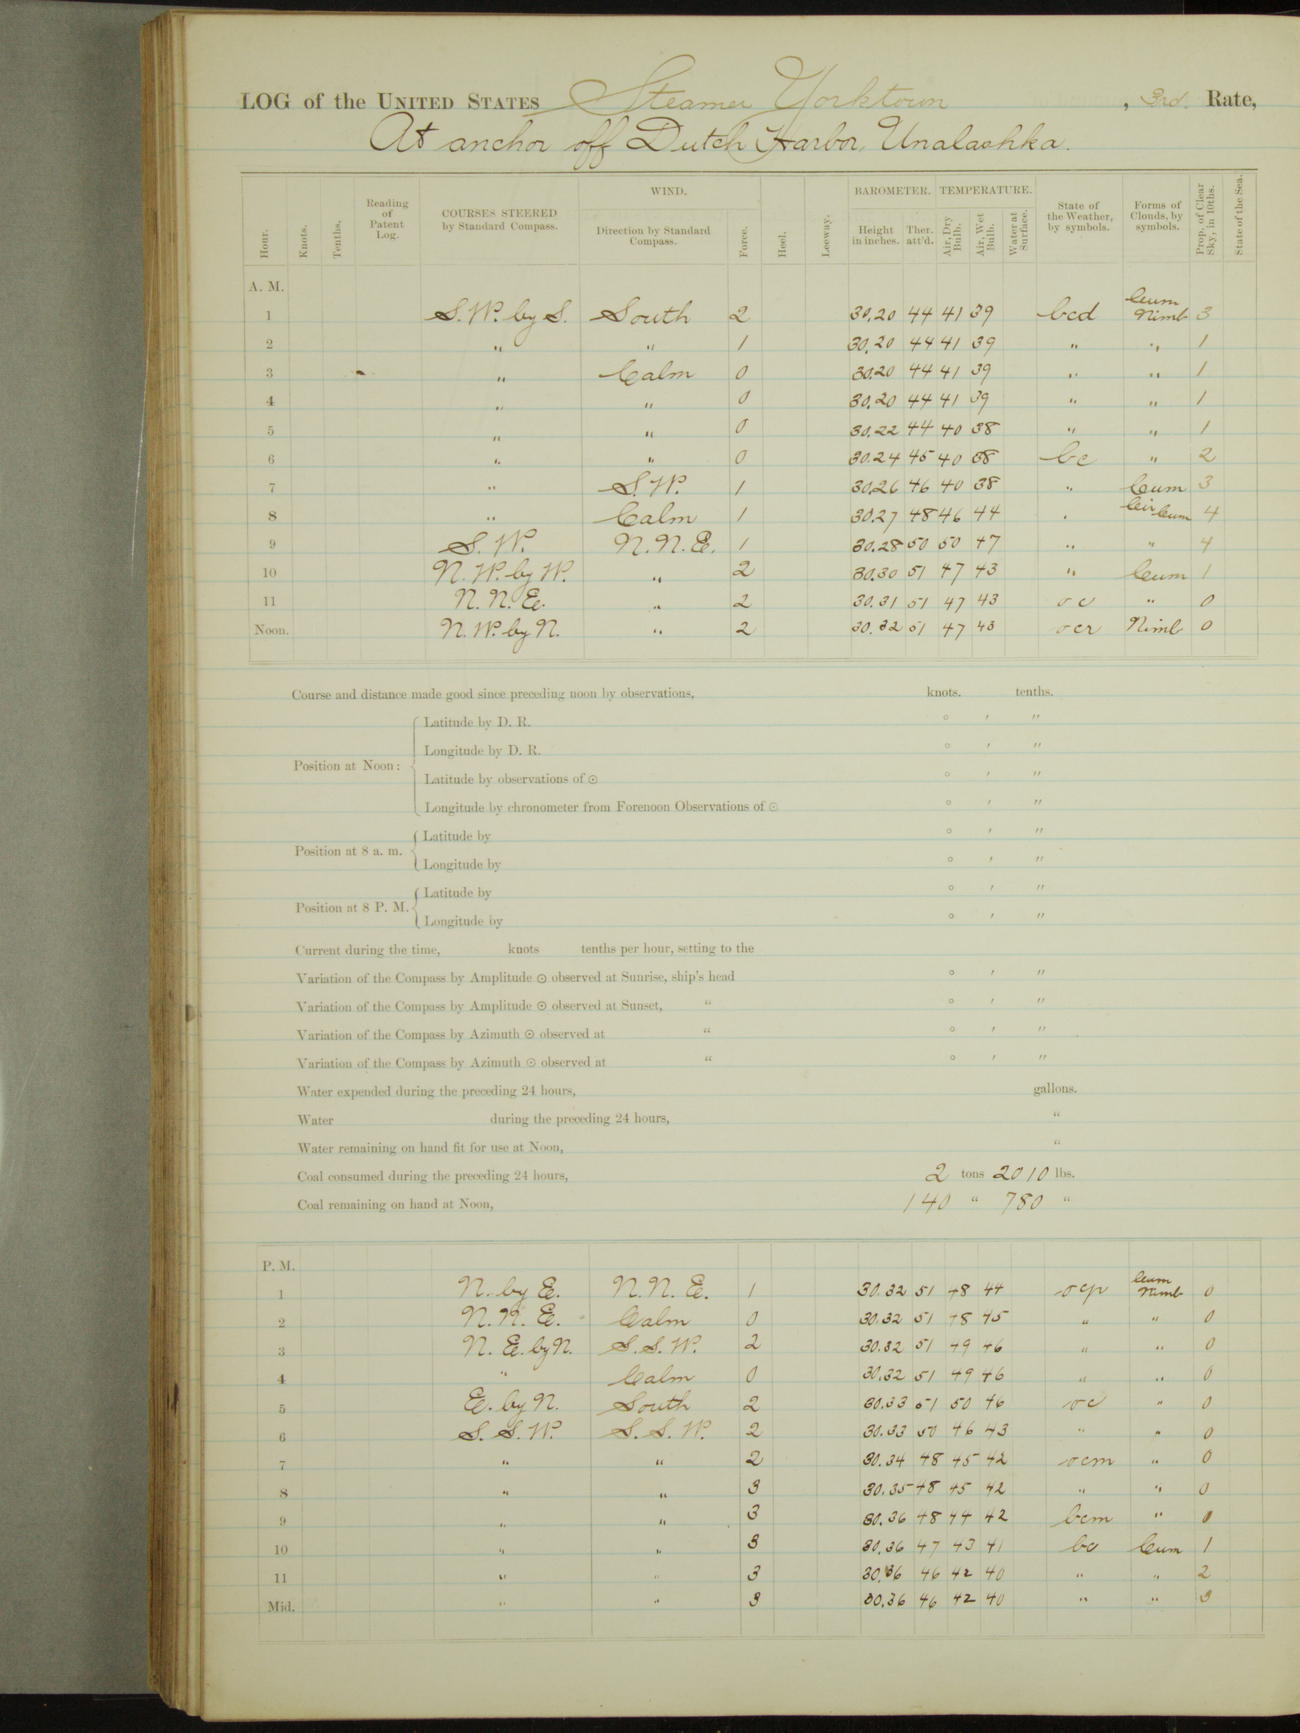 LOG of the UNITED STATES Steamer Yorktown, 3rd. Rate,
At anchor off Dutch Harbor, Unalashka.
WIND. BAROMETER. TEMPERATURE.
Hour. Knots. Tenths. Reading of Patent Log. COURSES STEERED by Standard Compass. Direction by Standard Compass. Force. Heel. Leeway. Height in inches. Ther. att'd. Air, Dry Bulb. Air, Wet Bulb. Water at Surface. State of the Weather, by symbols. Forms of Clouds, by symbols. Prop. of Clear Sky, in 10ths. State of the Sea.
A. M.
1 S. W. by S. South 2 30.20 44 41 39 bcd Cum Nimb 3
2 " " 1 30.20 44 41 39 " " 1
3 " Calm 0 30.20 44 41 39 " " 1
4 " " 0 30.20 44 41 39 " " 1
5 " " 0 30.22 44 40 38 " " 1
6 " " 0 30.24 45 40 38 bc " 2
7 " S. W. 1 30.26 46 40 38 " Cum 3
8 " Calm 1 30.27 48 46 44 " Cir Cum 4
9 S. W. N. N. E. 1 30.28 50 50 47 " " 4
10 N. W. by W. " 2 30.30 51 47 43 " Cum 1
11 N. N. E. " 2 30.31 51 47 43 oc " 0
Noon. N. W. by N. " 2 30.32 51 47 43 ocr Nimb 0
Course and distance made good since preceding noon by observations, knots. tenths.
Position at Noon: Latitude by D. R. ° ′ ″
Longitude by D. R. ° ′ ″
Latitude by observations of ☉ ° ′ ″
Longitude by chronometer from Forenoon Observations of ☉ ° ′ ″
Position at 8 a. m. Latitude by ° ′ ″
Longitude by ° ′ ″
Position at 8 P. M. Latitude by ° ′ ″
Longitude by ° ′ ″
Current during the time, knots tenths per hour, setting to the
Variation of the Compass by Amplitude ☉ observed at Sunrise, ship's head ° ′ ″
Variation of the Compass by Amplitude ☉ observed at Sunset, " ° ′ ″
Variation of the Compass by Azimuth ☉ observed at " ° ′ ″
Variation of the Compass by Azimuth ☉ observed at " ° ′ ″
Water expended during the preceding 24 hours, gallons.
Water during the preceding 24 hours, "
Water remaining on hand fit for use at Noon, "
Coal consumed during the preceding 24 hours, 2 tons 2010 lbs.
Coal remaining on hand at Noon, 140 " 780 "
P. M.
1 N. by E. N. N. E. 1 30.32 51 48 44 ocp Cum Nimb 0
2 N. N. E. Calm 0 30.32 51 48 45 " " 0
3 N. E. by N. S. S. W. 2 30.32 51 49 46 " " 0
4 " Calm 0 30.32 51 49 46 " " 0
5 E. by N. South 2 30.33 51 50 46 oc " 0
6 S. S. W. S. S. W. 2 30.33 50 46 43 " " 0
7 " " 2 30.34 48 45 42 ocm " 0
8 " " 3 30.35 48 45 42 " " 0
9 " " 3 30.36 48 44 42 bcm " 0
10 " " 3 30.36 47 43 41 bc Cum 1
11 " " 3 30.36 46 42 40 " " 2
Mid. " " 3 30.36 46 42 40 " " 3